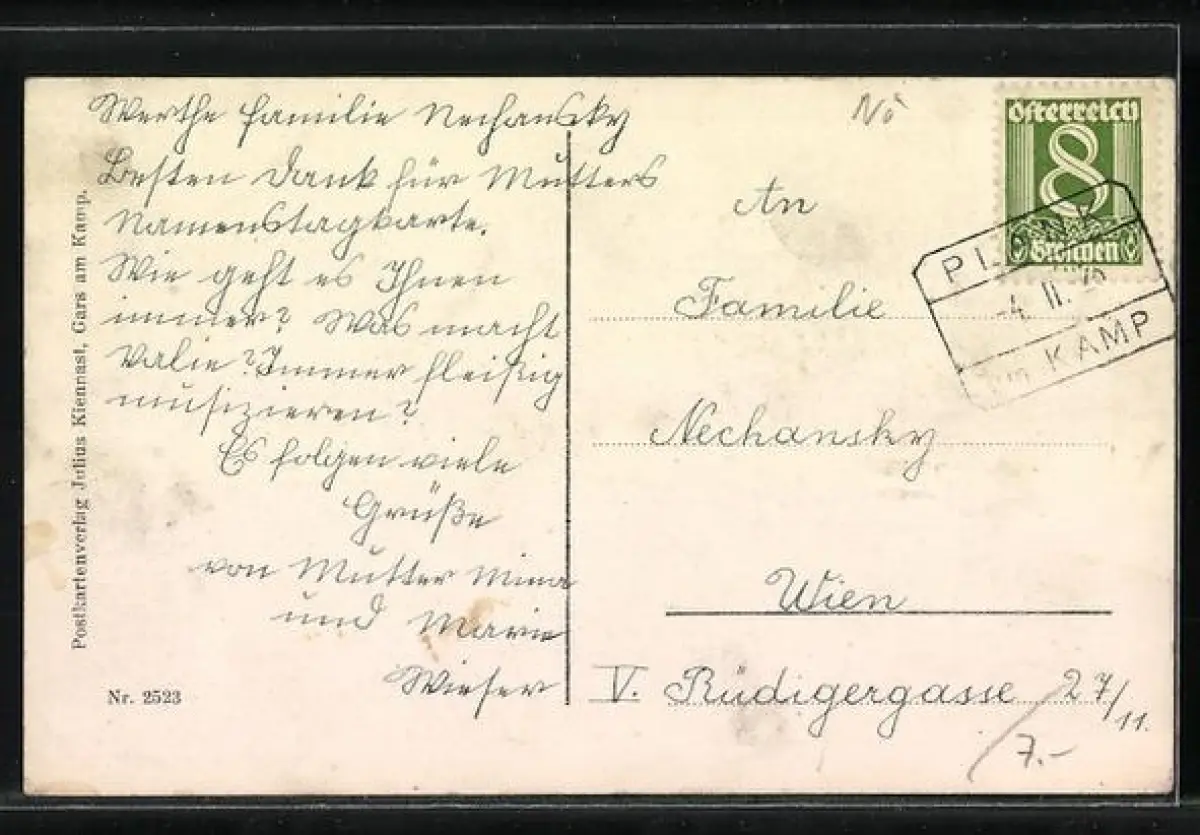 Werthe Familie Nechansky
Besten Dank für Mutters
Namenstagkarte.
Wie geht es Ihnen
immer? Was macht
Valie? Immer fleißig
musizieren?
Es folgen viele
Grüße
von Mutter Mina
und Marie
Wieser
Postkartenverlag Julius Kiennast, Gars am Kamp.
Nr. 2523
NÖ
Österreich
8
Groschen
PLANK
-4. II. 26
am KAMP
An
Familie
Nechansky
Wien
V. Rüdigergasse 27/11.
7.-